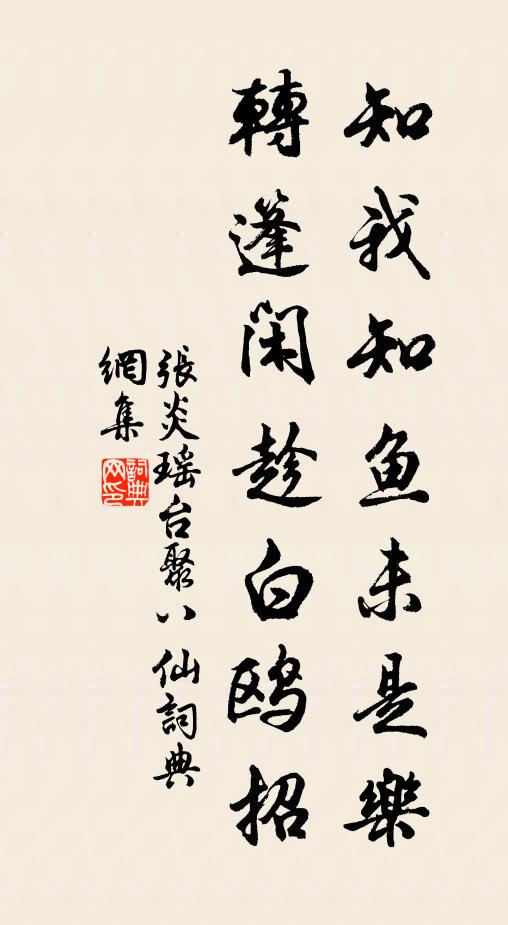 知我知鱼未是樂
轉蓬闲趁白鷗招
張炎瑶台聚八仙詞典
網集
詞典网印